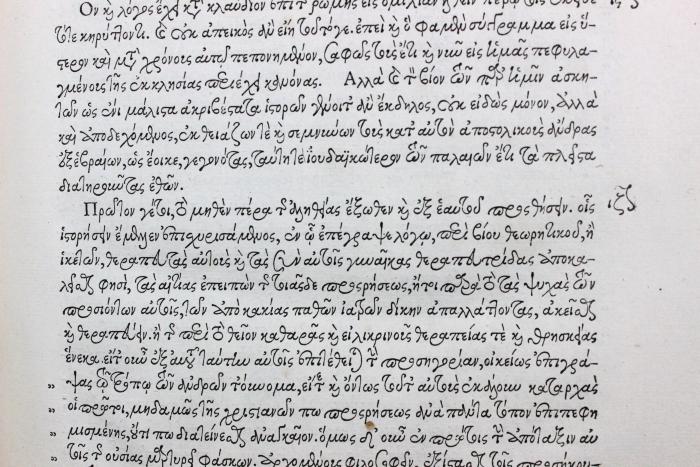 Ὃν καὶ λόγος ἔχει κατὰ κλαύδιον ἐπὶ τῆς ῥώμης εἰς ὁμιλίαν ἐλθεῖν πέτρῳ τοῖς ἐκεῖσε
τότε κηρύττοντι. καὶ οὐκ ἀπεικὸς ἂν εἴη τοῦτό γε. ἐπεὶ καὶ ὅ φαμεν τὸ σύγγραμμα εἰς ὕ-
στερον καὶ μετὰ χρόνους αὐτῷ πεπονημένον, σαφῶς τοὺς ἔτι καὶ νῦν εἰς ἡμᾶς πεφυλα-
γμένους τῆς ἐκκλησίας περιέχει κανόνας. Ἀλλὰ καὶ τὸν βίον τῶν παρ' ἡμῖν ἀσκη-
τῶν ὡς ἔνι μάλιστα ἀκριβέστατα ἱστορῶν γένοιτ' ἂν ἔκδηλος, οὐκ εἰδὼς μόνον, ἀλλὰ
καὶ ἀποδεχόμενος, ἐκθειάζων τε καὶ σεμνύνων τοὺς κατ' αὐτὸν ἀποστολικοὺς ἄνδρας
ἐξ ἑβραίων, ὡς ἔοικε, γεγονότας, ταύτῃ τε ἰουδαϊκώτερον τῶν παλαιῶν ἔτι τὰ πλεῖστα
διατηροῦντας ἐθῶν.
Πρῶτόν γέ τοι, τὸ μηδὲν πέρα τῆς ἀληθείας ἔξωθεν καὶ ἐξ ἑαυτοῦ προσθήσειν. οἷς ιζ
ἱστορήσειν ἔμελλεν ἀπισχυρισάμενος, ἐν ᾧ ἐπέγραψε λόγῳ, περὶ βίου θεωρητικοῦ, ἢ
ἱκετῶν, θεραπευτὰς αὐτοὺς καὶ τὰς σὺν αὐτοῖς γυναῖκας θεραπευτρίδας ἀποκα-
λεῖσθαι φησὶ, τὰς αἰτίας ἐπειπὼν τῆς τοιᾶσδε προσρήσεως, ἤτοι παρὰ τὸ τὰς ψυχὰς τῶν
προσιόντων αὐτοῖς, τῶν ἀπὸ κακίας παθῶν ἰατρῶν δίκην ἀπαλλάττοντας, ἀκεῖσθαι
καὶ θεραπεύειν. ἢ τῆς περὶ τὸ θεῖον καθαρᾶς καὶ εἰλικρινοῦς θεραπείας τε καὶ θρησκείας
ἕνεκα. εἴτ' οὖν ἐξ αὐτοῦ ταύτην αὐτοῖς ἐπιτέθειται τὴν προσηγορίαν, οἰκείως ἐπιγρά-
„ ψας τῷ τρόπῳ τῶν ἀνδρῶν τοὔνομα, εἴτε καὶ ὄντως τοῦτ' αὐτοὺς ἐκάλουν κατ' ἀρχὰς
„ οἱ πρῶτοι, μηδαμῶς τῆς χριστιανῶν πω προσρήσεως ἀνὰ πάντα τόπον ἐπιπεφη
„ μισμένης, οὔτι πω διατείνεσθαι ἀναγκαῖον. ὅμως δ' οὖν ἐν πρώτοις τὴν ἀπόταξιν αὐ
„ τοῖς τῆς οὐσίας μαρτυρεῖ φάσκων.